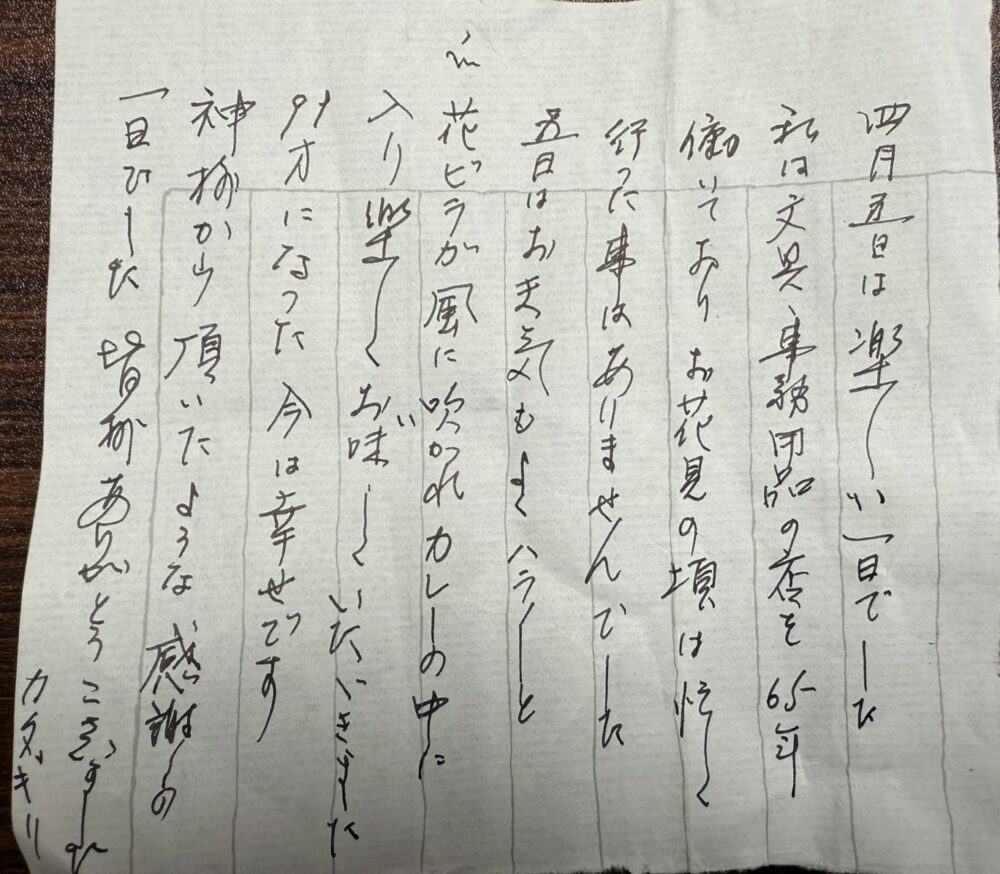 四月五日は楽しい一日でした
私は文具、事務用品の店を65年
働いており お花見の頃は忙しく
行った事はありませんでした
五日はお天気もよくハラハラと
花ビラが風に吹かれカレーの中に
入り 楽しくお味しくいただきました
91才になった 今は幸せです
神様から頂いたような 感謝の
一日でした 皆様ありがとうございました
カタギリ